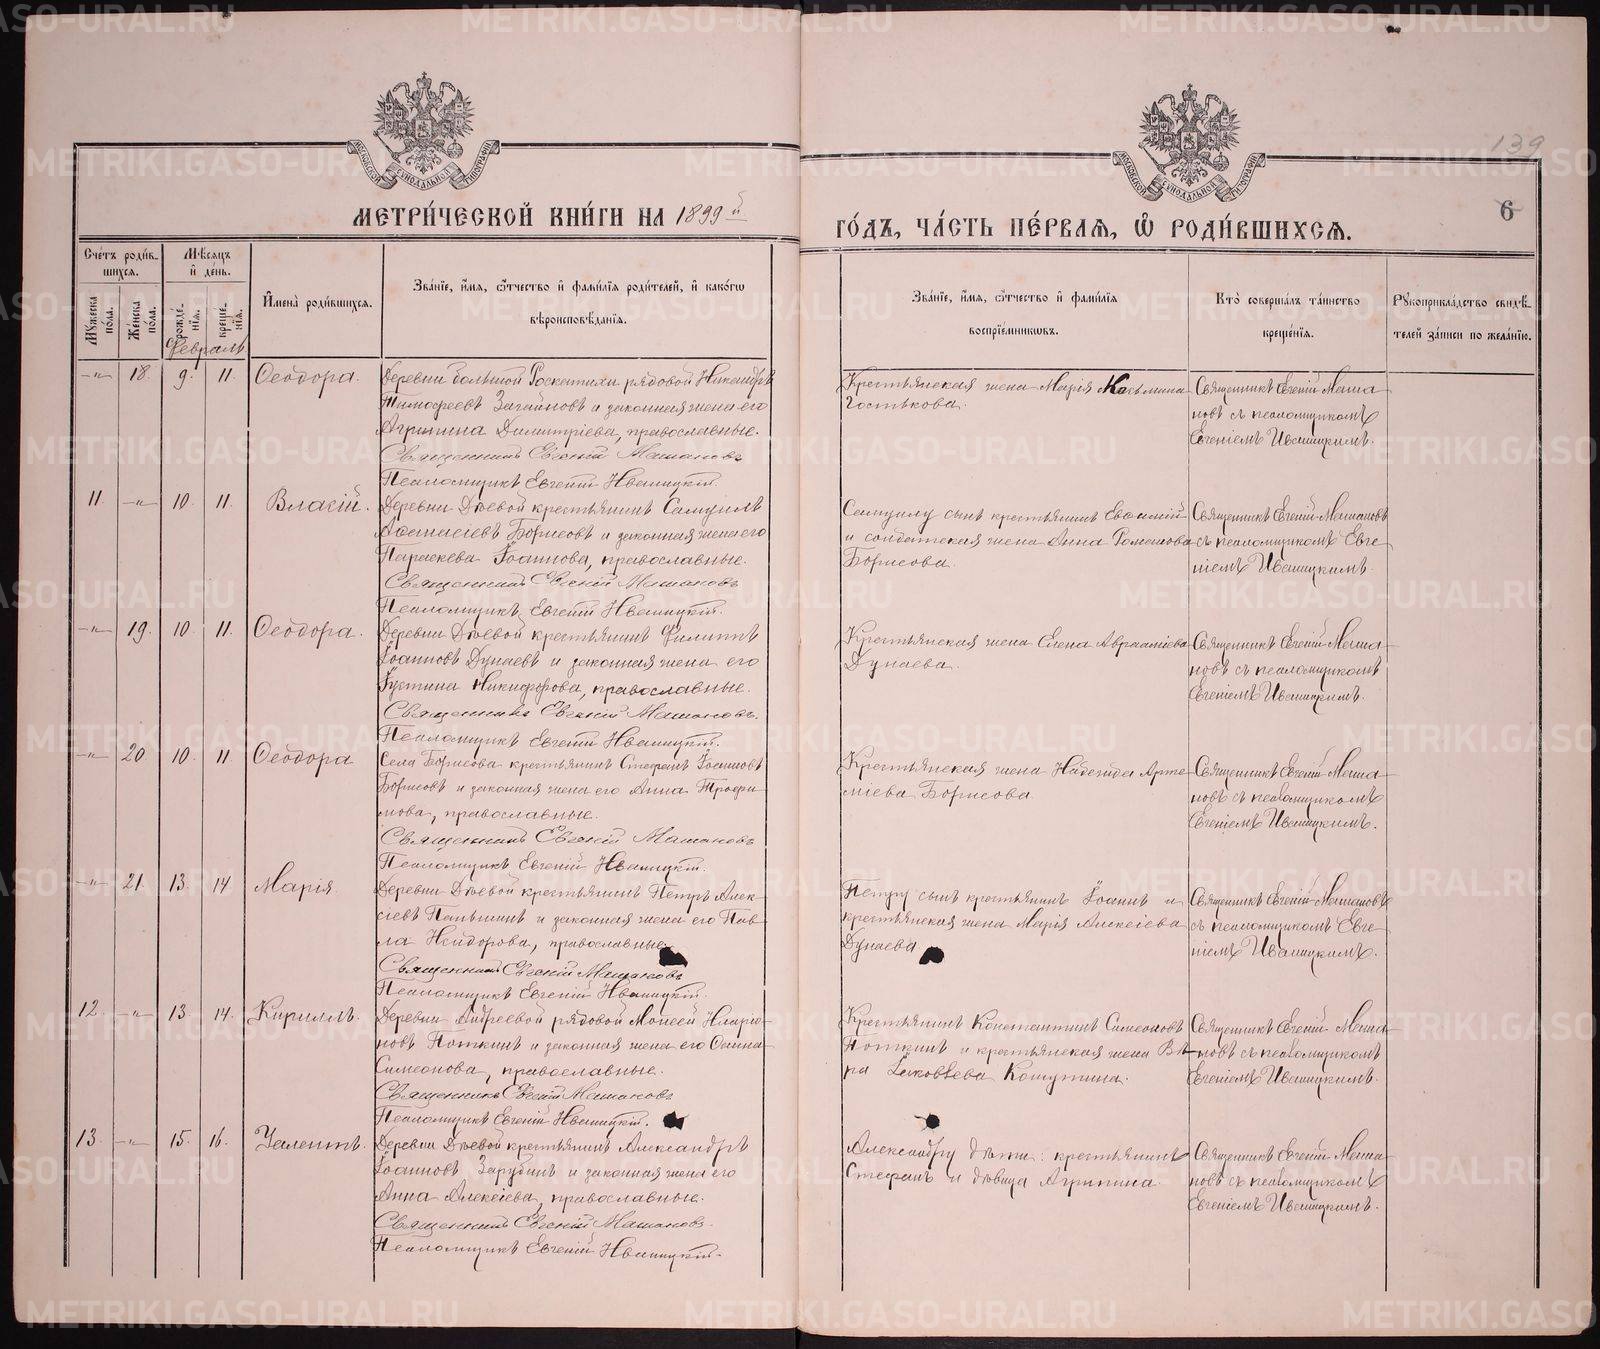 139
6
МЕТРИ́ЧЕСКОЙ КНИ́ГИ НА 1899й
ГО́ДЪ, ЧА́СТЬ ПЕ́РВАѦ, Ѡ҆ РОДИ́ВШИХСѦ.
Сче́тъ роди́в-
шихсѧ.
Мѣ́сѧцъ
и҆ де́нь.
Мꙋ́жеска
по́ла.
Же́нска
по́ла.
рожде́-
нїѧ.
креще́-
нїѧ.
И҆мена̀ роди́вшихсѧ.
Зва́нїе, и҆́мѧ, ѻ҆́тчество и҆ фами́лїѧ роди́телей, и҆ како́гѡ
вѣроисповѣ́данїѧ.
Зва́нїе, и҆́мѧ, ѻ҆́тчество и҆ фами́лїѧ
воспрїе́мникѡвъ.
Кто̀ соверша́лъ та́инство
креще́нїѧ.
Рꙋкоприкла́дство свидѣ́-
телей за́писи по жела́нїю.
Февраль
-"- 18. 9. 11. Ѳеодора.
Деревни Большой рядовой Никандръ
Тимофеевъ Загайновъ и законная жена его
Агрипина Димитріева, православные.
Священникъ Евгеній Машановъ
Псаломщикъ Евгеній Ивановскій.
Крестьянская жена Марія Косьмина
Гостькова.
Священникъ Евгеній Маша-
новъ съ псаломщикомъ
Евгеніемъ
11 -"- 10. 11. Власій.
Деревни Дѣевой крестьянинъ Самуилъ
Аѳанасіевъ Борисовъ и законная жена его
Параскева Іоаннова, православные.
Священникъ Евгеній Машановъ
Псаломщикъ Евгеній
Самуилу сынъ крестьянинъ Евѳимій
и солдатская жена Анна Романова
Борисова.
Священникъ Евгеній Машановъ
съ псаломщикомъ Евге-
ніемъ
-"- 19. 10. 11. Ѳеодора.
Деревни Дѣевой крестьянинъ Филиппъ
Іоанновъ Дунаевъ и законная жена его
Іустина Никифорова, православные.
Священникъ Евгеній Машановъ.
Псаломщикъ Евгеній
Крестьянская жена Елена Авраамiева
Дунаева.
Священникъ Евгеній Маша-
новъ съ псаломщикомъ
Евгеніемъ
-"- 20 10. 11 Ѳеодора
Села Борисова крестьянинъ Стефанъ Іоанновъ
Борисовъ и законная жена его Анна Трофи-
мова, православные.
Священникъ Евгеній Машановъ
Псаломщикъ Евгеній
Крестьянская жена Надежда Арте-
міева Борисова.
Священникъ Евгеній Маша-
новъ съ псаломщикомъ
Евгеніемъ
-"- 21. 13. 14. Марія.
Деревни Дѣевой крестьянинъ Петръ Алек-
сіевъ Паньшинъ и законная жена его Пав-
ла Исидорова, православные.
Священникъ Евгеній Машановъ
Псаломщикъ Евгеній
Петру сынъ крестьянинъ Іоаннъ и
крестьянская жена Марія Алексіева
Дунаева
Священникъ Евгеній Машановъ
съ псаломщикомъ Евге-
ніемъ
12. -"- 13. 14. Кириллъ.
Деревни Андреевой рядовой Моисей Иларіо-
новъ Поткинъ и законная жена его
Симеонова, православные.
Священникъ Евгеній Машановъ
Псаломщикъ Евгеній
Крестьянинъ Константинъ Симеоновъ
Поткинъ и крестьянская жена Вѣ-
ра Іаковлева Кошутина.
Священникъ Евгеній Маша-
новъ съ псаломщикомъ
Евгеніемъ
13. -"- 15. 16.
Деревни Дѣевой крестьянинъ Александръ
Іоанновъ Зарубинъ и законная жена его
Анна Алексіева, православные.
Священникъ Евгеній Машановъ.
Псаломщикъ Евгеній
Александру дѣти: крестьянинъ
Стефанъ и дѣвица Агрипина.
Священникъ Евгеній Маша-
новъ съ псаломщикомъ
Евгеніемъ
METRIKI.GASO-URAL.RU